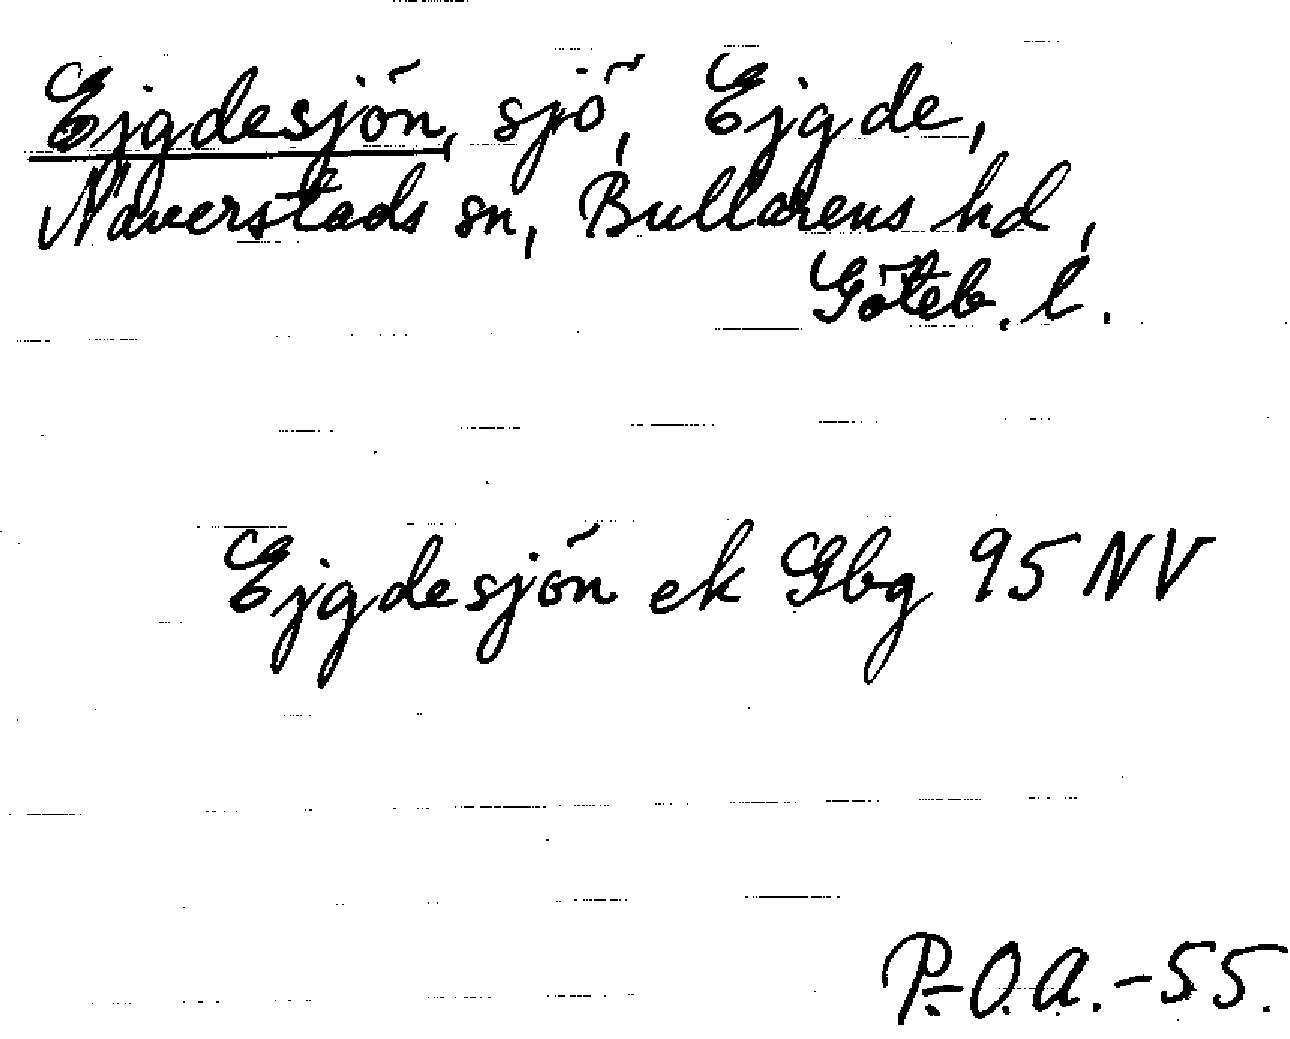 Ejgdesjön, sjö, Ejgde,
Naverstads sn, Bullarens hd,
Göteb. l.
Ejgdesjön ek Gbg 95 NV
P.-O.A.-55.